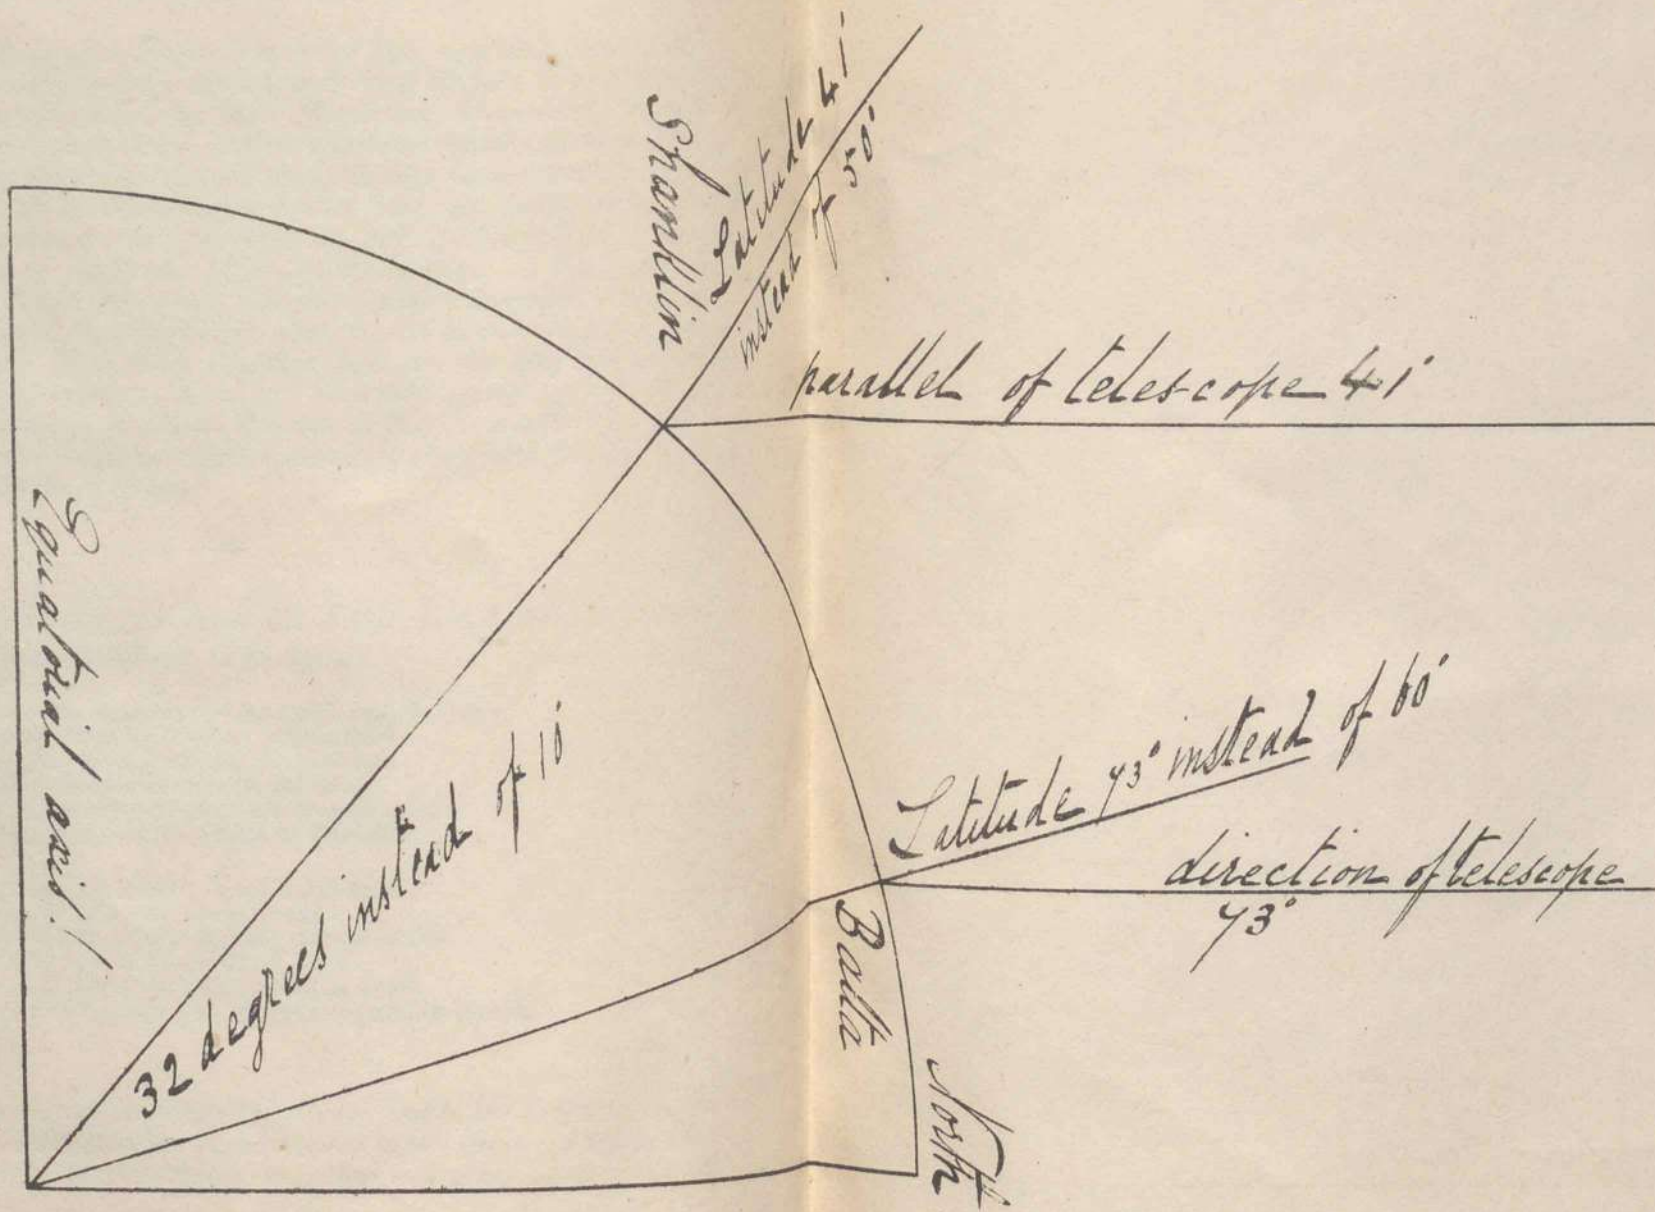 Shanklin
Latitude 41°
instead of 50°
parallel of telescope 41°
Equatorial axis!
32 degrees instead of 10°
Latitude 73° instead of 60°
direction of telescope
73°
Balta
North